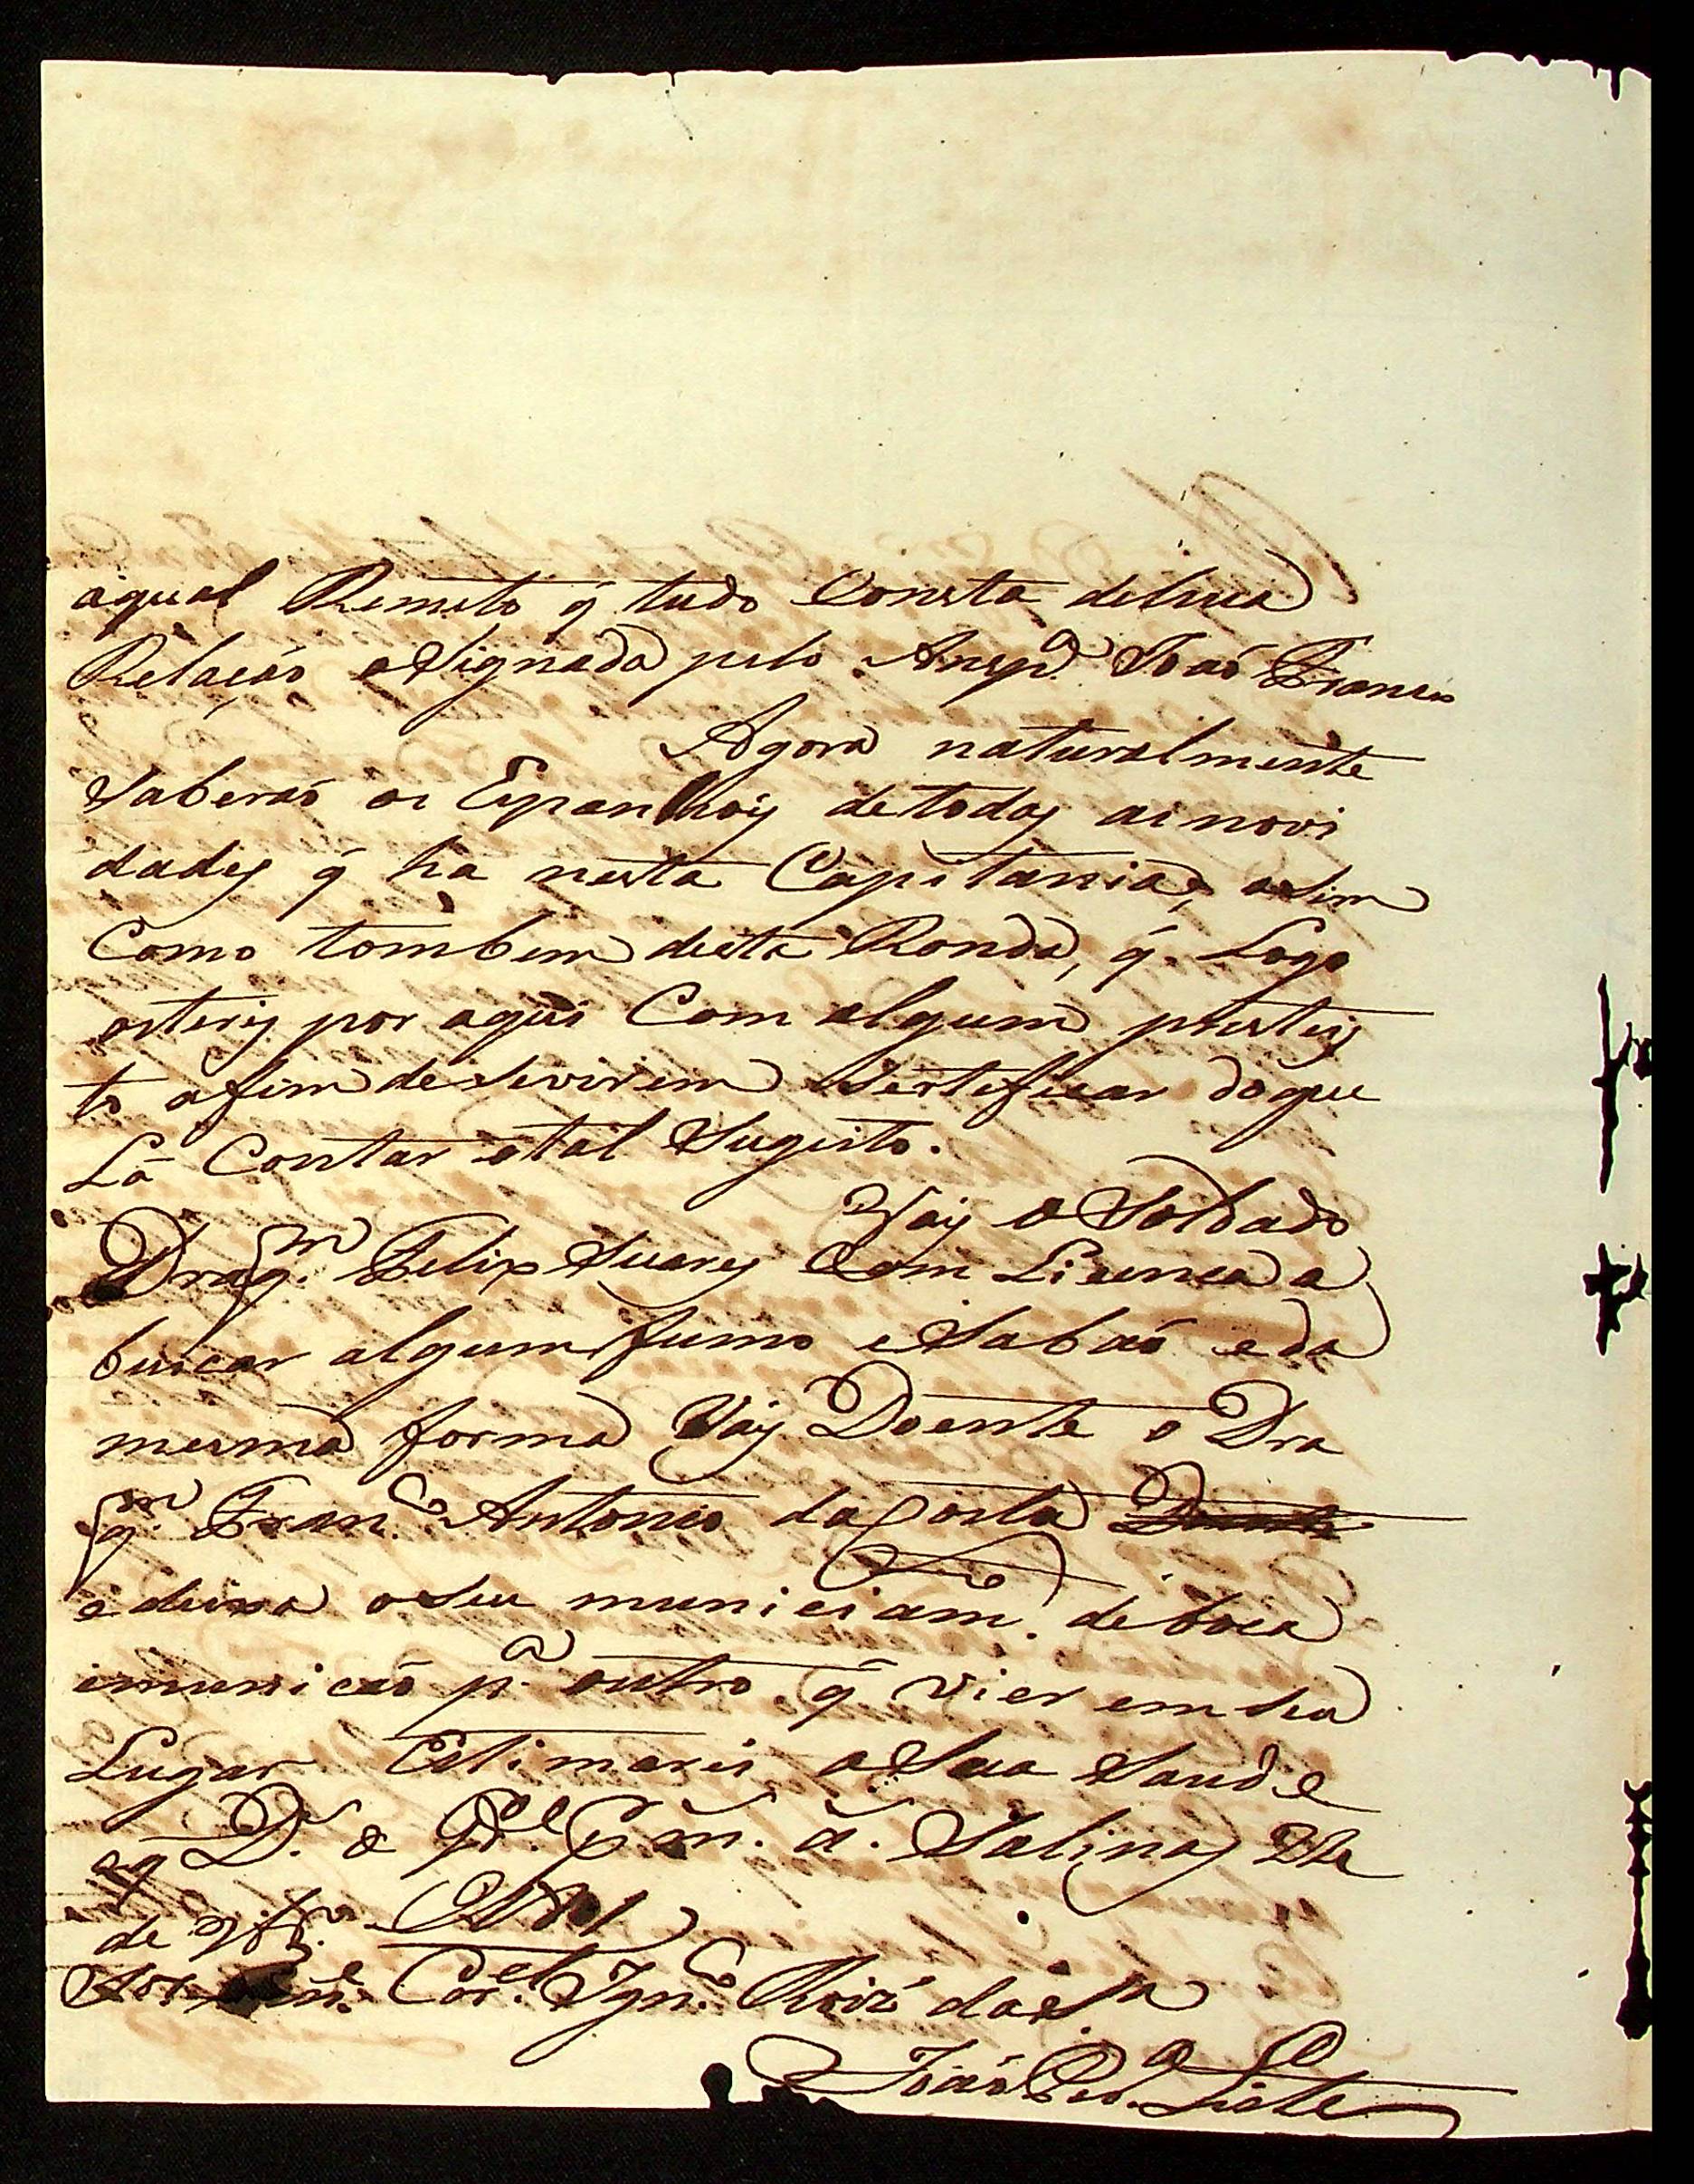 aqual Remeto q̃ tudo Consta dehua
Relação asignada pelo Ansp.ᵃ João Francisco
Agora naturalmente
Saberaõ os Espanhois detodas asnovi
dades q̃ ha nesta Capitania, asim
Como tombem desta Ronda, q̃ Logo
osteris por aqui Com algum pretex
to afim desevirem Serteficar doque
Lá Contar otal Sugeito.
Vay o Soldado
Drag.ᵐ Felix Suares Com Licenca a
buscar algum fumo eSabaõ eda
mesma forma Vay Doente o Dra
g.ᵐ Fran.ᶜᵒ Antonio daCosta
edeixa oSeu municiam.ᵗᵒ deboca
emunicaõ p.ᵃ outro q̃ vier emseu
Lugar Estimarei aSua Saude
aq D.ˢ g.ᵈᵉ m. a. Salinas
de
Cor.ᵉˡ Ign.ᶜᵒ Roiz daS.ᵃ
João Leite